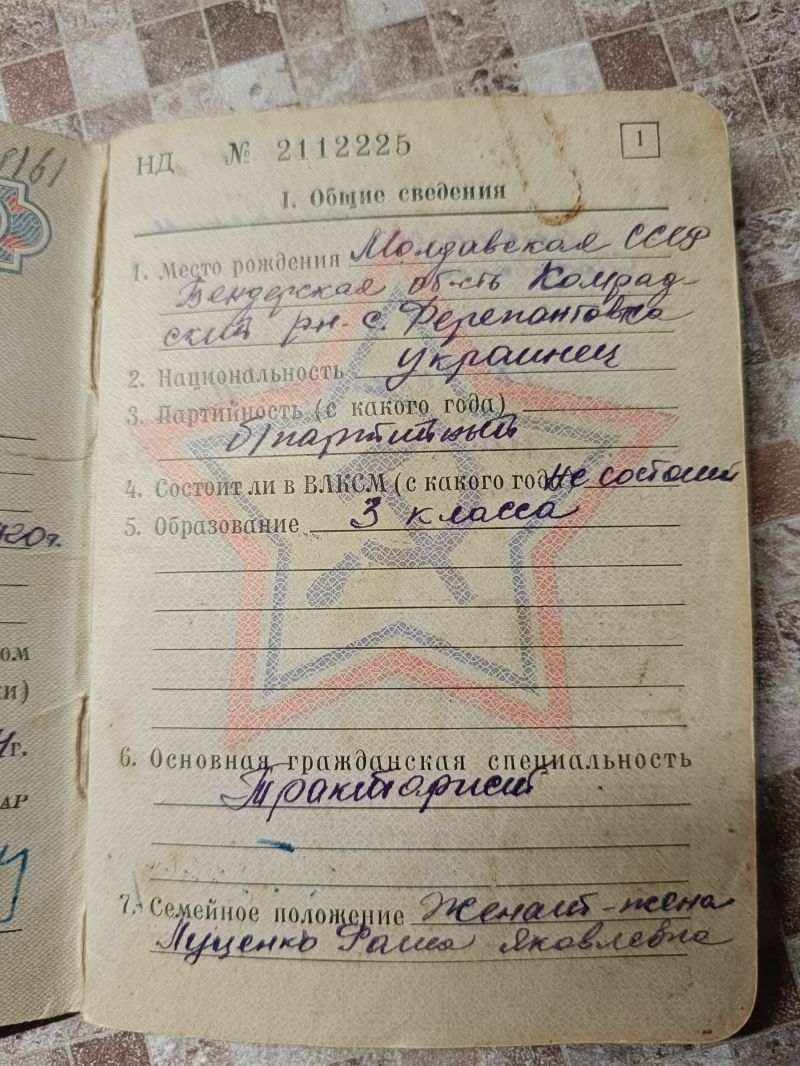 8161
НД № 2112225
1
I. Общие сведения
1. Место рождения Молдавская ССР
Бендерская об-сть Комрад-
ский рн. с. Ферепонтовка
2. Национальность украинец
3. Партийность (с какого года)
б/партийный
4. Состоит ли в ВЛКСМ (с какого года) не состоит
5. Образование 3 класса
6. Основная гражданская специальность
Тракторист
7. Семейное положение Женат - жена
Луценко Яковлевна
920г.
ом
ки)
г.
АР